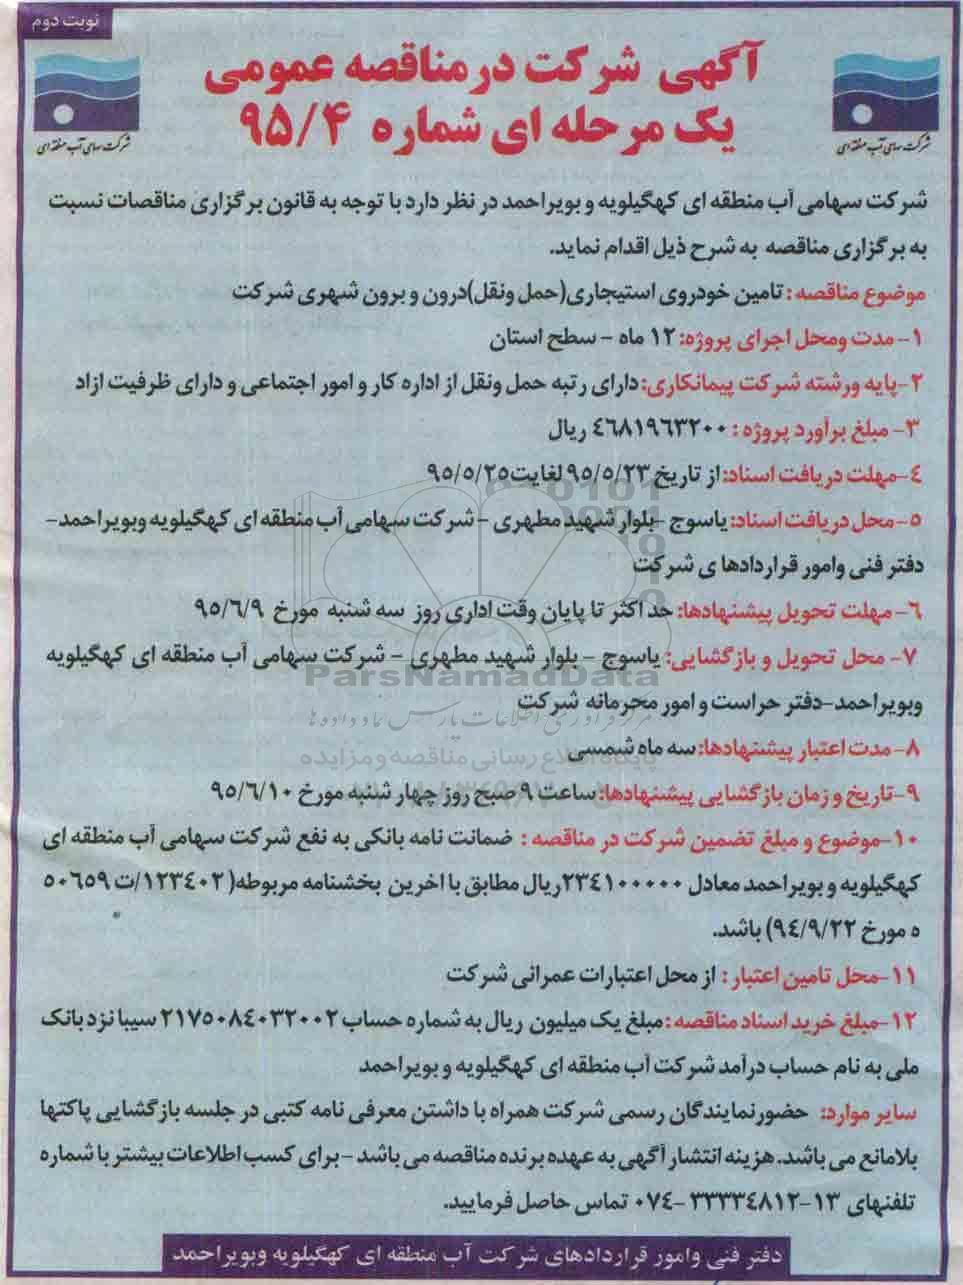 نوبت دوم
آگهی شرکت در مناقصه عمومی
یک مرحله ای شماره ۹۵/۴
شرکت سهامی آب منطقه ای
شرکت سهامی آب منطقه ای
شرکت سهامی آب منطقه ای کهگیلویه و بویراحمد در نظر دارد با توجه به قانون برگزاری مناقصات نسبت
به برگزاری مناقصه به شرح ذیل اقدام نماید.
موضوع مناقصه: تامین خودروی استیجاری(حمل ونقل)درون و برون شهری شرکت
۱- مدت ومحل اجرای پروژه: ۱۲ ماه - سطح استان
۲-پایه ورشته شرکت پیمانکاری: دارای رتبه حمل ونقل از اداره کار و امور اجتماعی و دارای ظرفیت ازاد
۳- مبلغ برآورد پروژه : ۴۶۸۱۹۶۳۲۰۰ ریال
۴-مهلت دریافت اسناد: از تاریخ ۹۵/۵/۲۳ لغایت ۹۵/۵/۲۵
۵-محل دریافت اسناد: یاسوج -بلوار شهید مطهری - شرکت سهامی آب منطقه ای کهگیلویه وبویراحمد-
دفتر فنی وامور قراردادها ی شرکت
۶- مهلت تحویل پیشنهادها: حد اکثر تا پایان وقت اداری روز سه شنبه مورخ ۹۵/۶/۹
۷- محل تحویل و بازگشایی: یاسوج - بلوار شهید مطهری - شرکت سهامی آب منطقه ای کهگیلویه
ParsNamadData
وبویراحمد-دفتر حراست و امور محرمانه شرکت
مرکز فرآوری اطلاعات پارس نماد داده ها
۸- مدت اعتبار پیشنهادها: سه ماه شمسی
پایگاه اطلاع رسانی مناقصه و مزایده
۹-تاریخ و زمان بازگشایی پیشنهادها: ساعت ۹ صبح روز چهار شنبه مورخ ۹۵/۶/۱۰
۱۰-موضوع و مبلغ تضمین شرکت در مناقصه : ضمانت نامه بانکی به نفع شرکت سهامی آب منطقه ای
کهگیلویه و بویراحمد معادل ۲۳۴۱۰۰۰۰۰ریال مطابق با اخرین بخشنامه مربوطه( ۱۲۳۴۰۲/ت ۵۰۶۵۹
ه مورخ ۹۴/۹/۲۲) باشد.
۱۱-محل تامین اعتبار : از محل اعتبارات عمرانی شرکت
۱۲-مبلغ خرید اسناد مناقصه : مبلغ یک میلیون ریال به شماره حساب ۲۱۷۵۰۸۴۰۳۲۰۰۲ سیبا نزد بانک
ملی به نام حساب درآمد شرکت آب منطقه ای کهگیلویه و بویراحمد
سایر موارد: حضورنمایندگان رسمی شرکت همراه با داشتن معرفی نامه کتبی در جلسه بازگشایی پاکتها
بلامانع می باشد.هزینه انتشار آگهی به عهده برنده مناقصه می باشد -برای کسب اطلاعات بیشتر با شماره
تلفنهای ۱۳-۳۳۳۳۴۸۱۲ -۰۷۴ تماس حاصل فرمایید.
دفتر فنی وامور قراردادهای شرکت آب منطقه ای کهگیلویه وبویراحمد